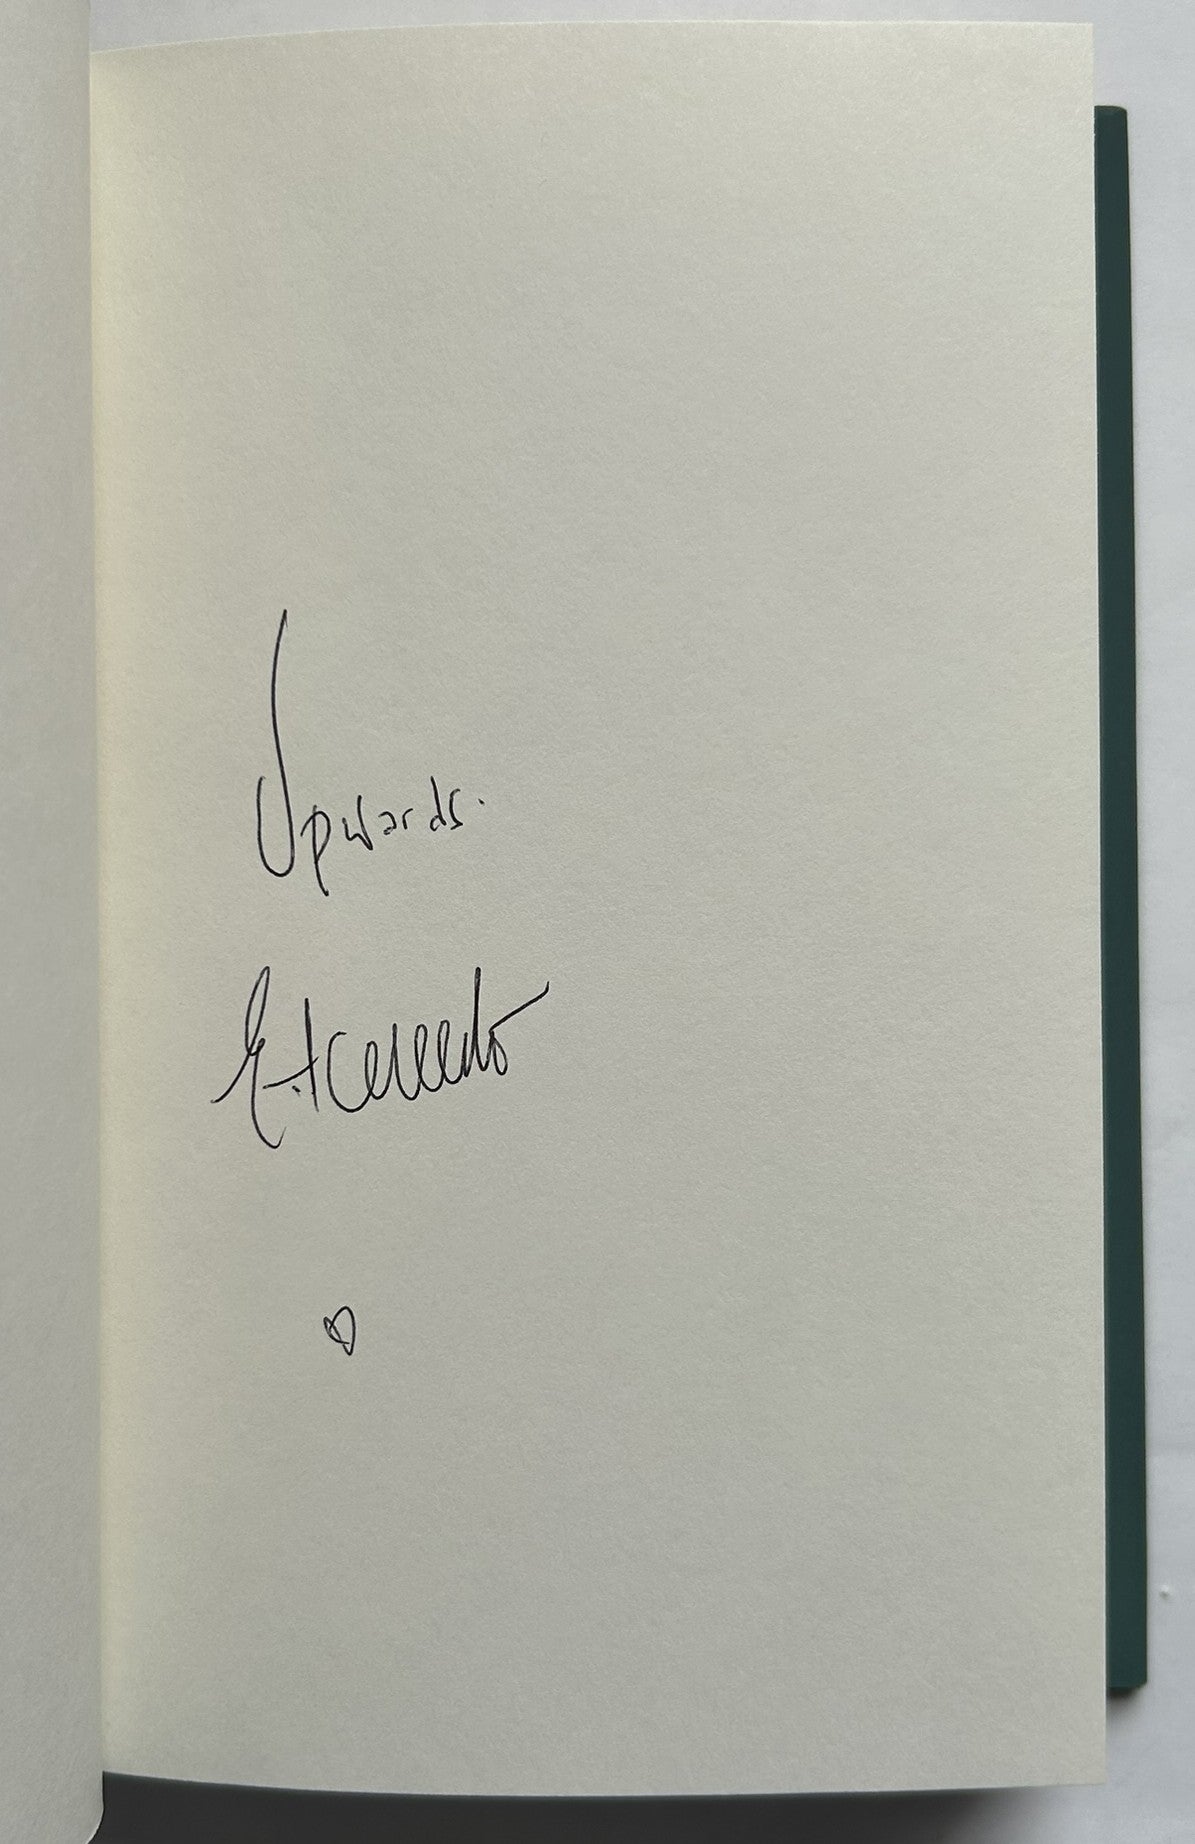 Upwards.
E. Acevedo